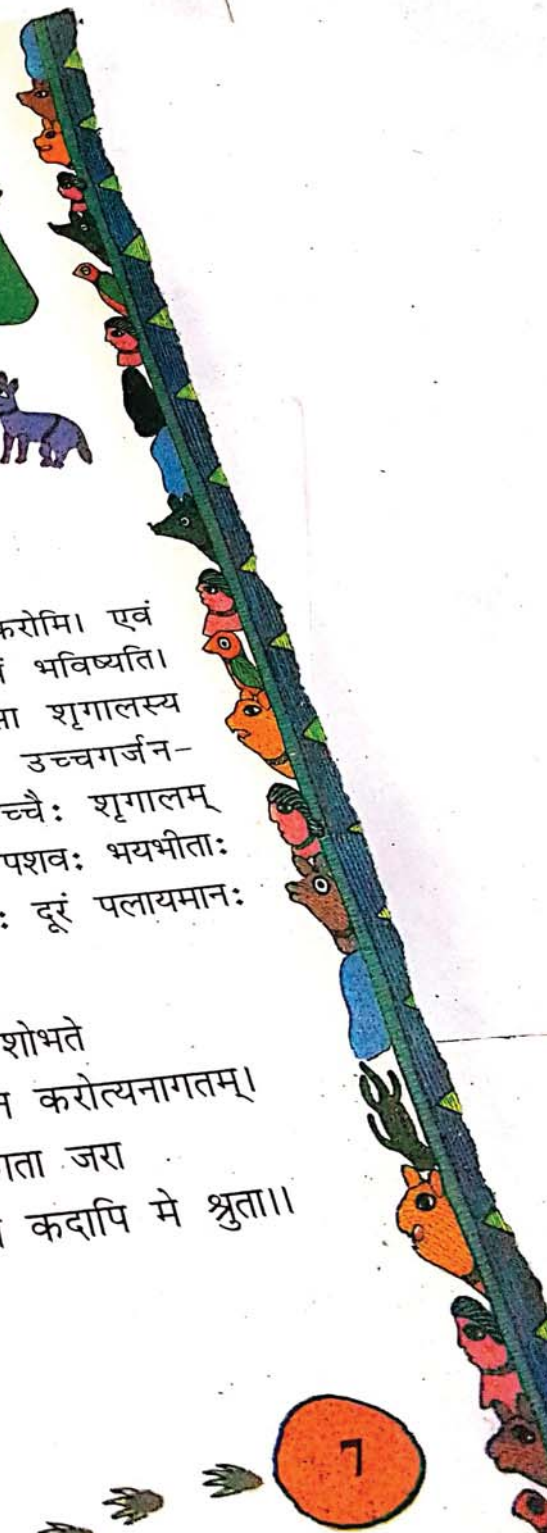 करोमि। एवं
भविष्यति।
शृगालस्य
उच्चगर्जन-
शृगालम्
पशवः भयभीताः
दूरं पलायमानः
शोभते
करोत्यनागतम्।
जरा
कदापि मे श्रुता।।